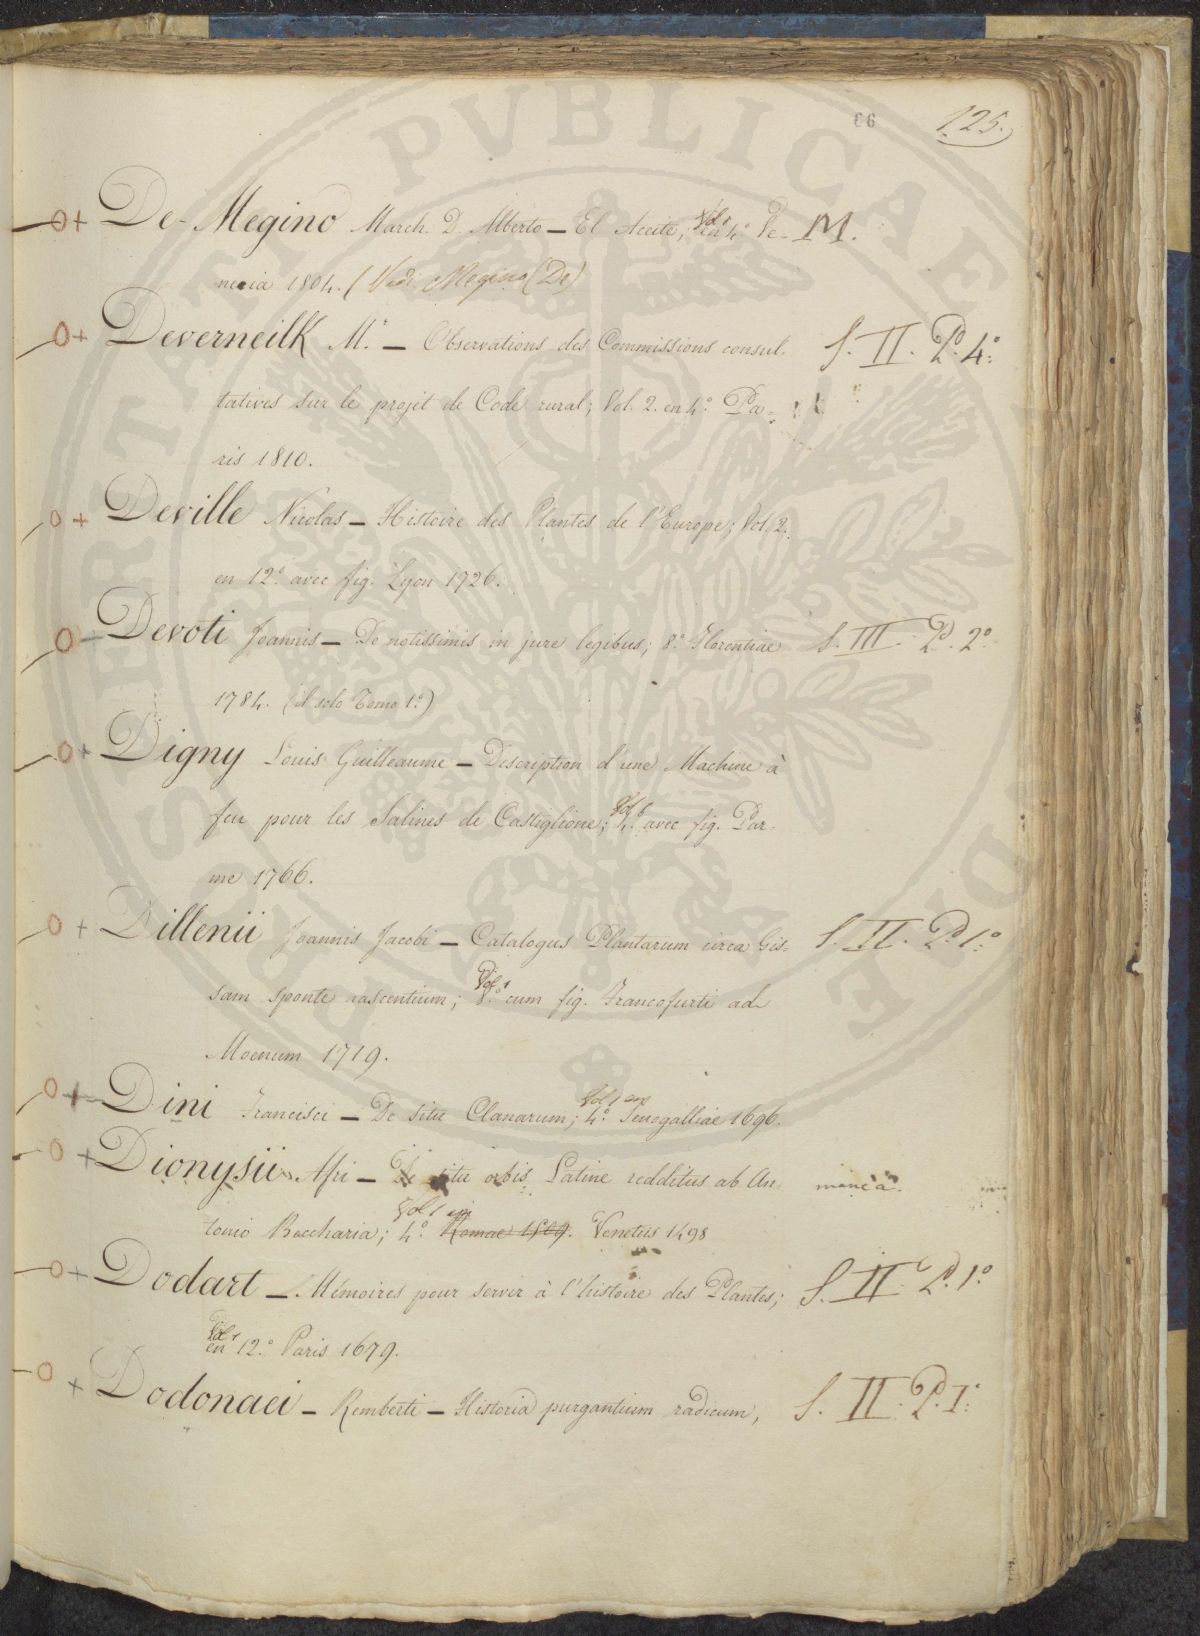 66 125.
De-Megino March. D. Alberto — El Aceite; Vol. 1 en 4.° Ve- M.
necia 1804. (Vedi Megino (De)
Deverneilk M.r — Observations des Commissions consul- S. II. P. 4.°
tatives sur le projét de Code rural; Vol. 2. en 4.° Pa-
ris 1810.
Deville Nicolas — Histoire des Plantes de l'Europe; Vol. 2.
en 12.° avec fig. Lyon 1726.
Devoti Joannis — De notissimis in jure legibus; 8.° Florentiae S. III. P. 2.°
1784. (il solo Tomo 1.°)
Digny Louis Guilleaume — Description d'une Machine à
feu pour les Salines de Castiglione; Vol. 1 4.° avec fig. Par-
me 1766.
Dillenii Joannis Jacobi — Catalogus Plantarum circa Gis- S. II. P. 1.°
sam sponte nascentium; Vol. 1 8.° cum fig. Francofurti ad
Moenum 1719.
Dini Francisci — De Situ Clanarum; Vol. 1 en 4.° Senogalliae 1696.
Dionysii Afri — De situ orbis Latine redditus ab An- manca
tonio Beccharia; Vol. 1 in 4.° Romae 1509. Venetiis 1498
Dodart — Mémoires pour servir à l'histoire des Plantes; S. II. P. 1.°
Vol. 1 en 12.° Paris 1679.
Dodonaei — Remberti — Historia purgantium radicum, S. II. P. 1.°
PVBLICAE